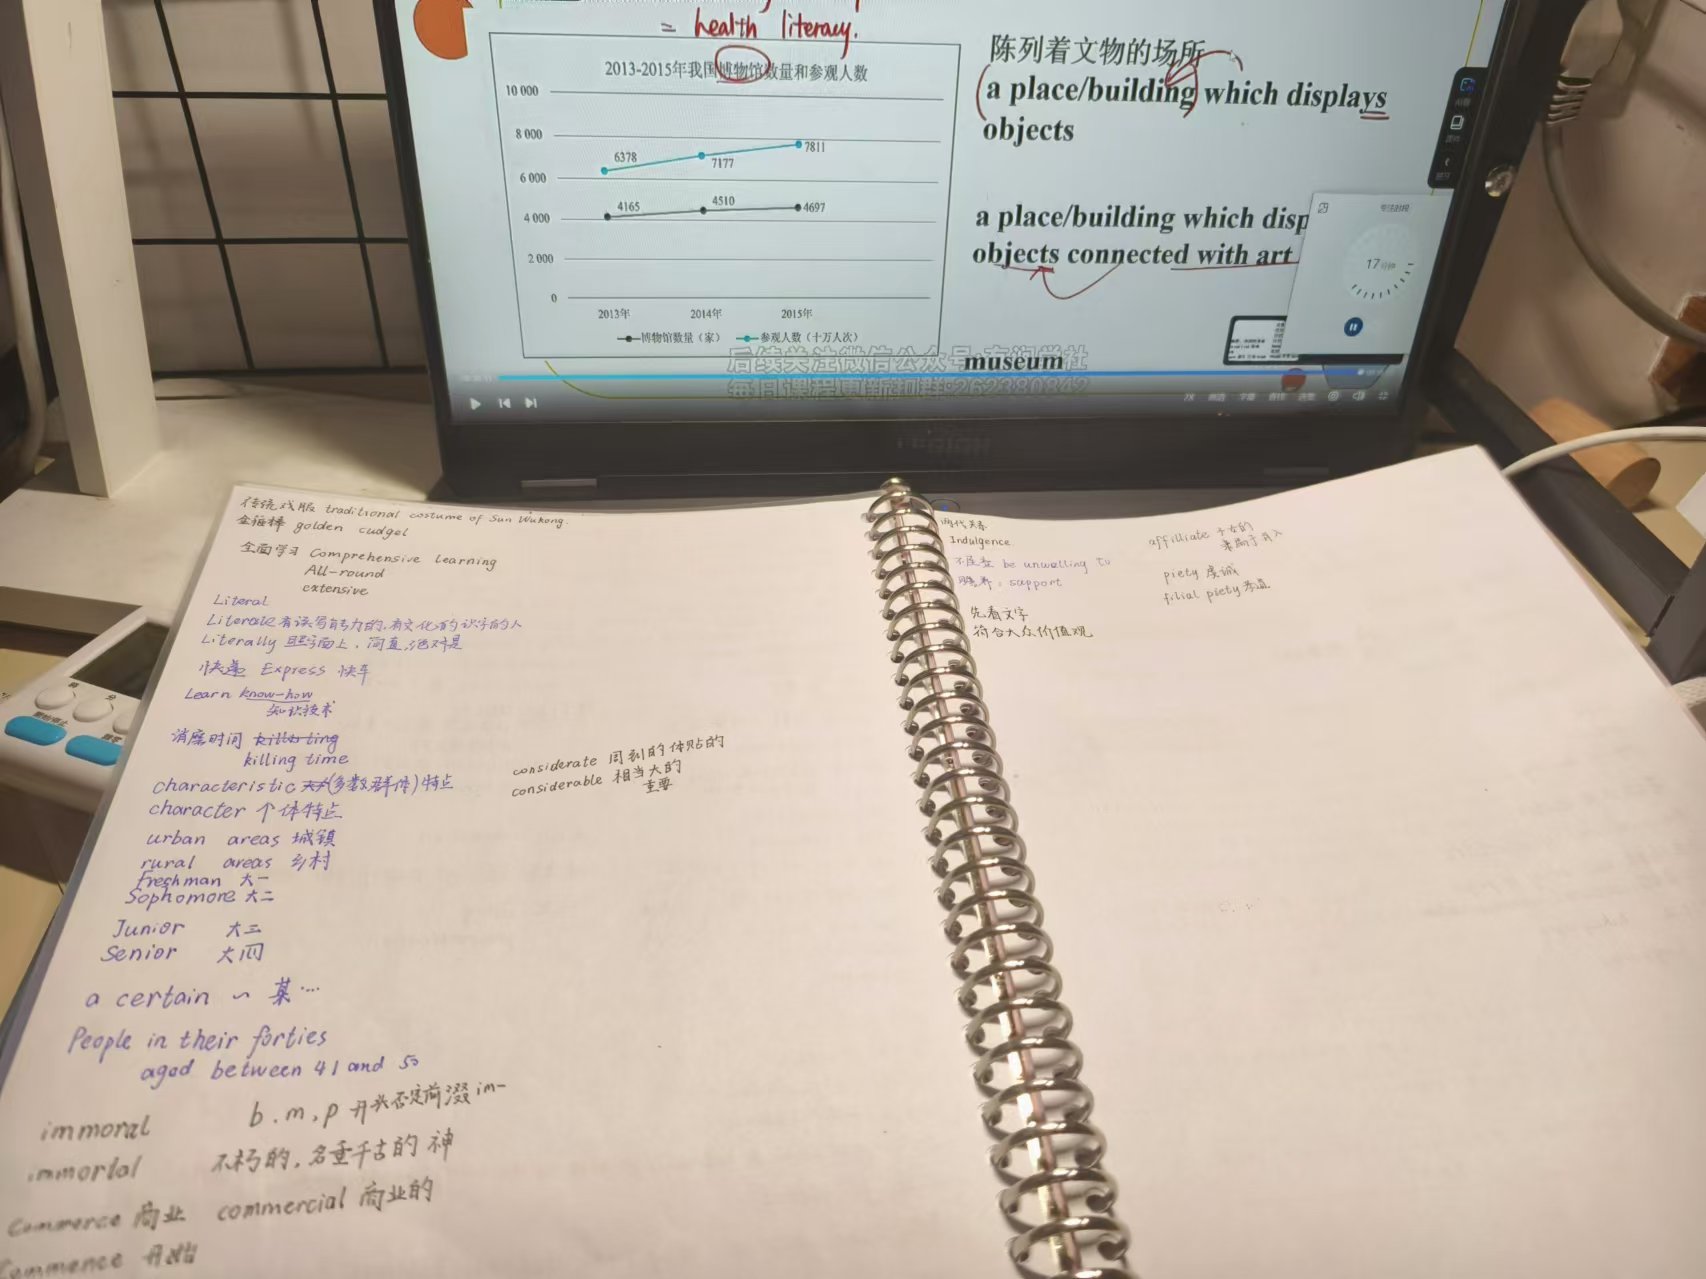 = health literacy.
2013-2015年我国博物馆数量和参观人数
10 000
8 000
6 000
4 000
2 000
0
6378
7177
7811
4165
4510
4697
2013年
2014年
2015年
博物馆数量（家）
参观人数（十万人次）
陈列着文物的场所
a place/building which displays
objects
a place/building which disp
objects connected with art
museum
17分钟
后续关注微信公众号:有润学社
每日课程更新加群:262380842
传统戏服 traditional costume of Sun Wukong.
金箍棒 golden cudgel
全面学习 Comprehensive learning
All-round
extensive
Literal
Literate 有读写能力的,有文化的 识字的人
Literally 照字面上, 简直,绝对是
快递 Express 快车
Learn know-how
知识技术
消磨时间
killing time
characteristic (多数群体)特点
character 个体特点
urban areas 城镇
rural areas 乡村
Freshman 大一
Sophomore 大二
Junior 大三
Senior 大四
a certain ~ 某…
People in their forties
aged between 41 and 50
immoral b.m,p 开头否定前缀 im-
immortal 不朽的, 名垂千古的 神
Commerce 商业 commercial 商业的
Commence 开始
considerate 周到的 体贴的
considerable 相当大的
重要
两代关系
Indulgence
不愿意 be unwilling to
赡养: support
先看文字
符合大众价值观
affilliate 子女的
隶属于,并入
piety 虔诚
filial piety 孝道